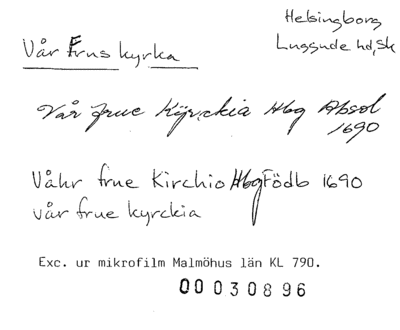 Helsingborg
Luggude hd, Sk
Vår Frus kyrka
Vår frue Kyrckia Hbg Absol
1690
Våhr frue Kirchio Hbg Födb 1690
vår frue kyrckia
Exc. ur mikrofilm Malmöhus län KL 790.
00030896